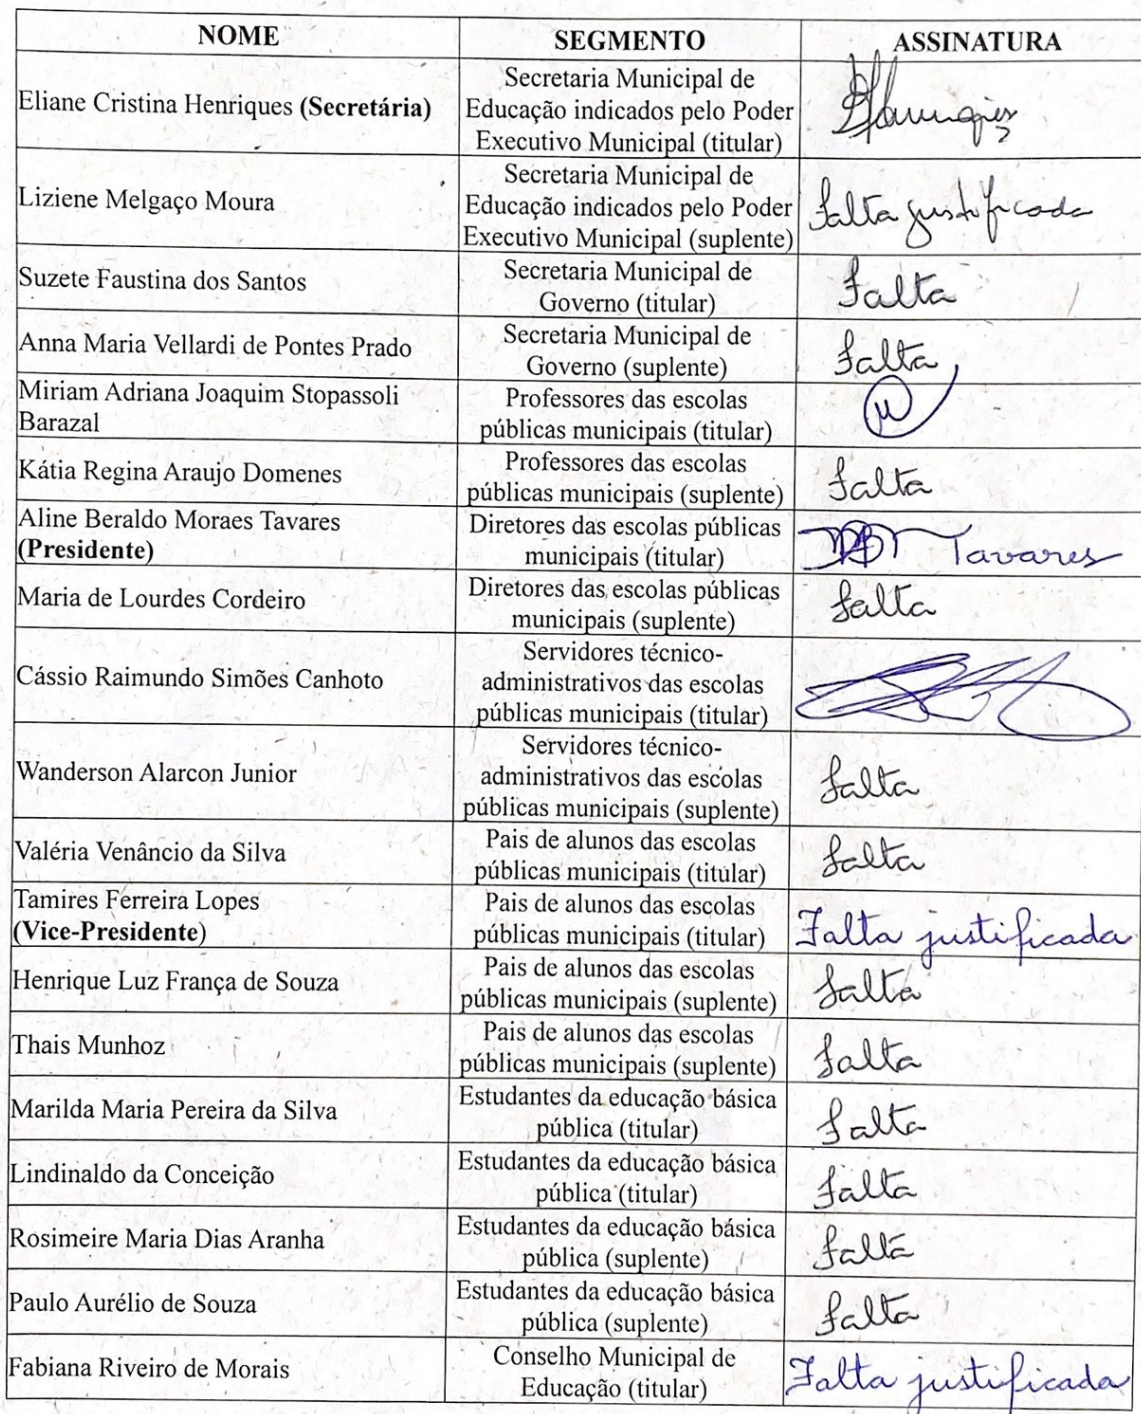 NOME SEGMENTO ASSINATURA
Eliane Cristina Henriques (Secretária)
Secretaria Municipal de
Educação indicados pelo Poder
Executivo Municipal (titular)
Liziene Melgaço Moura
Secretaria Municipal de
Educação indicados pelo Poder
Executivo Municipal (suplente)
Falta justificada
Suzete Faustina dos Santos
Secretaria Municipal de
Governo (titular)
Falta
Anna Maria Vellardi de Pontes Prado
Secretaria Municipal de
Governo (suplente)
Falta
Miriam Adriana Joaquim Stopassoli
Barazal
Professores das escolas
públicas municipais (titular)
Kátia Regina Araujo Domenes
Professores das escolas
públicas municipais (suplente)
Falta
Aline Beraldo Moraes Tavares
(Presidente)
Diretores das escolas públicas
municipais (titular)
Tavares
Maria de Lourdes Cordeiro
Diretores das escolas públicas
municipais (suplente)
Falta
Cássio Raimundo Simões Canhoto
Servidores técnico-
administrativos das escolas
públicas municipais (titular)
Wanderson Alarcon Junior
Servidores técnico-
administrativos das escolas
públicas municipais (suplente)
Falta
Valéria Venâncio da Silva
Pais de alunos das escolas
públicas municipais (titular)
Falta
Tamires Ferreira Lopes
(Vice-Presidente)
Pais de alunos das escolas
públicas municipais (titular)
Falta justificada
Henrique Luz França de Souza
Pais de alunos das escolas
públicas municipais (suplente)
Falta
Thais Munhoz
Pais de alunos das escolas
públicas municipais (suplente)
Falta
Marilda Maria Pereira da Silva
Estudantes da educação básica
pública (titular)
Falta
Lindinaldo da Conceição
Estudantes da educação básica
pública (titular)
Falta
Rosimeire Maria Dias Aranha
Estudantes da educação básica
pública (suplente)
Falta
Paulo Aurélio de Souza
Estudantes da educação básica
pública (suplente)
Falta
Fabiana Riveiro de Morais
Conselho Municipal de
Educação (titular)
Falta justificada